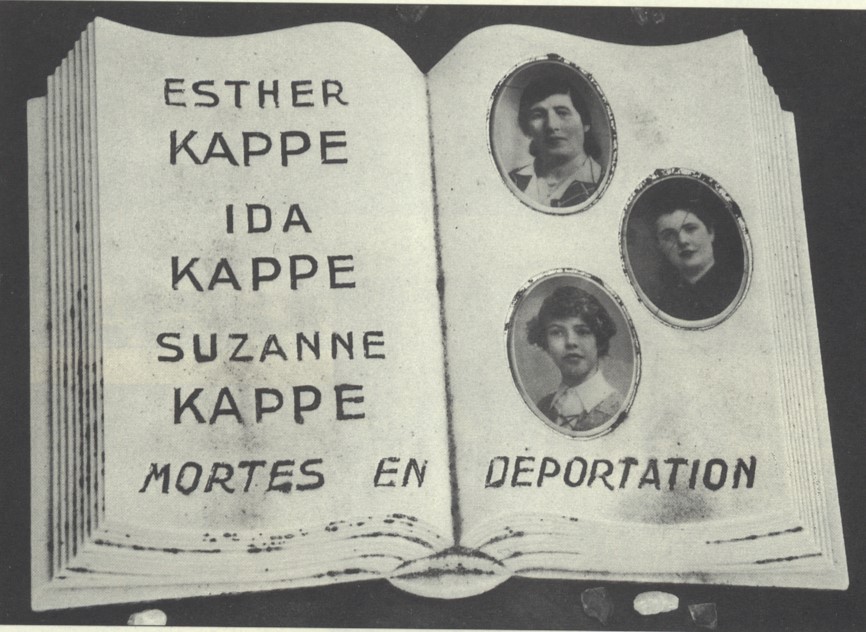 ESTHER
KAPPE
IDA
KAPPE
SUZANNE
KAPPE
MORTES EN DEPORTATION